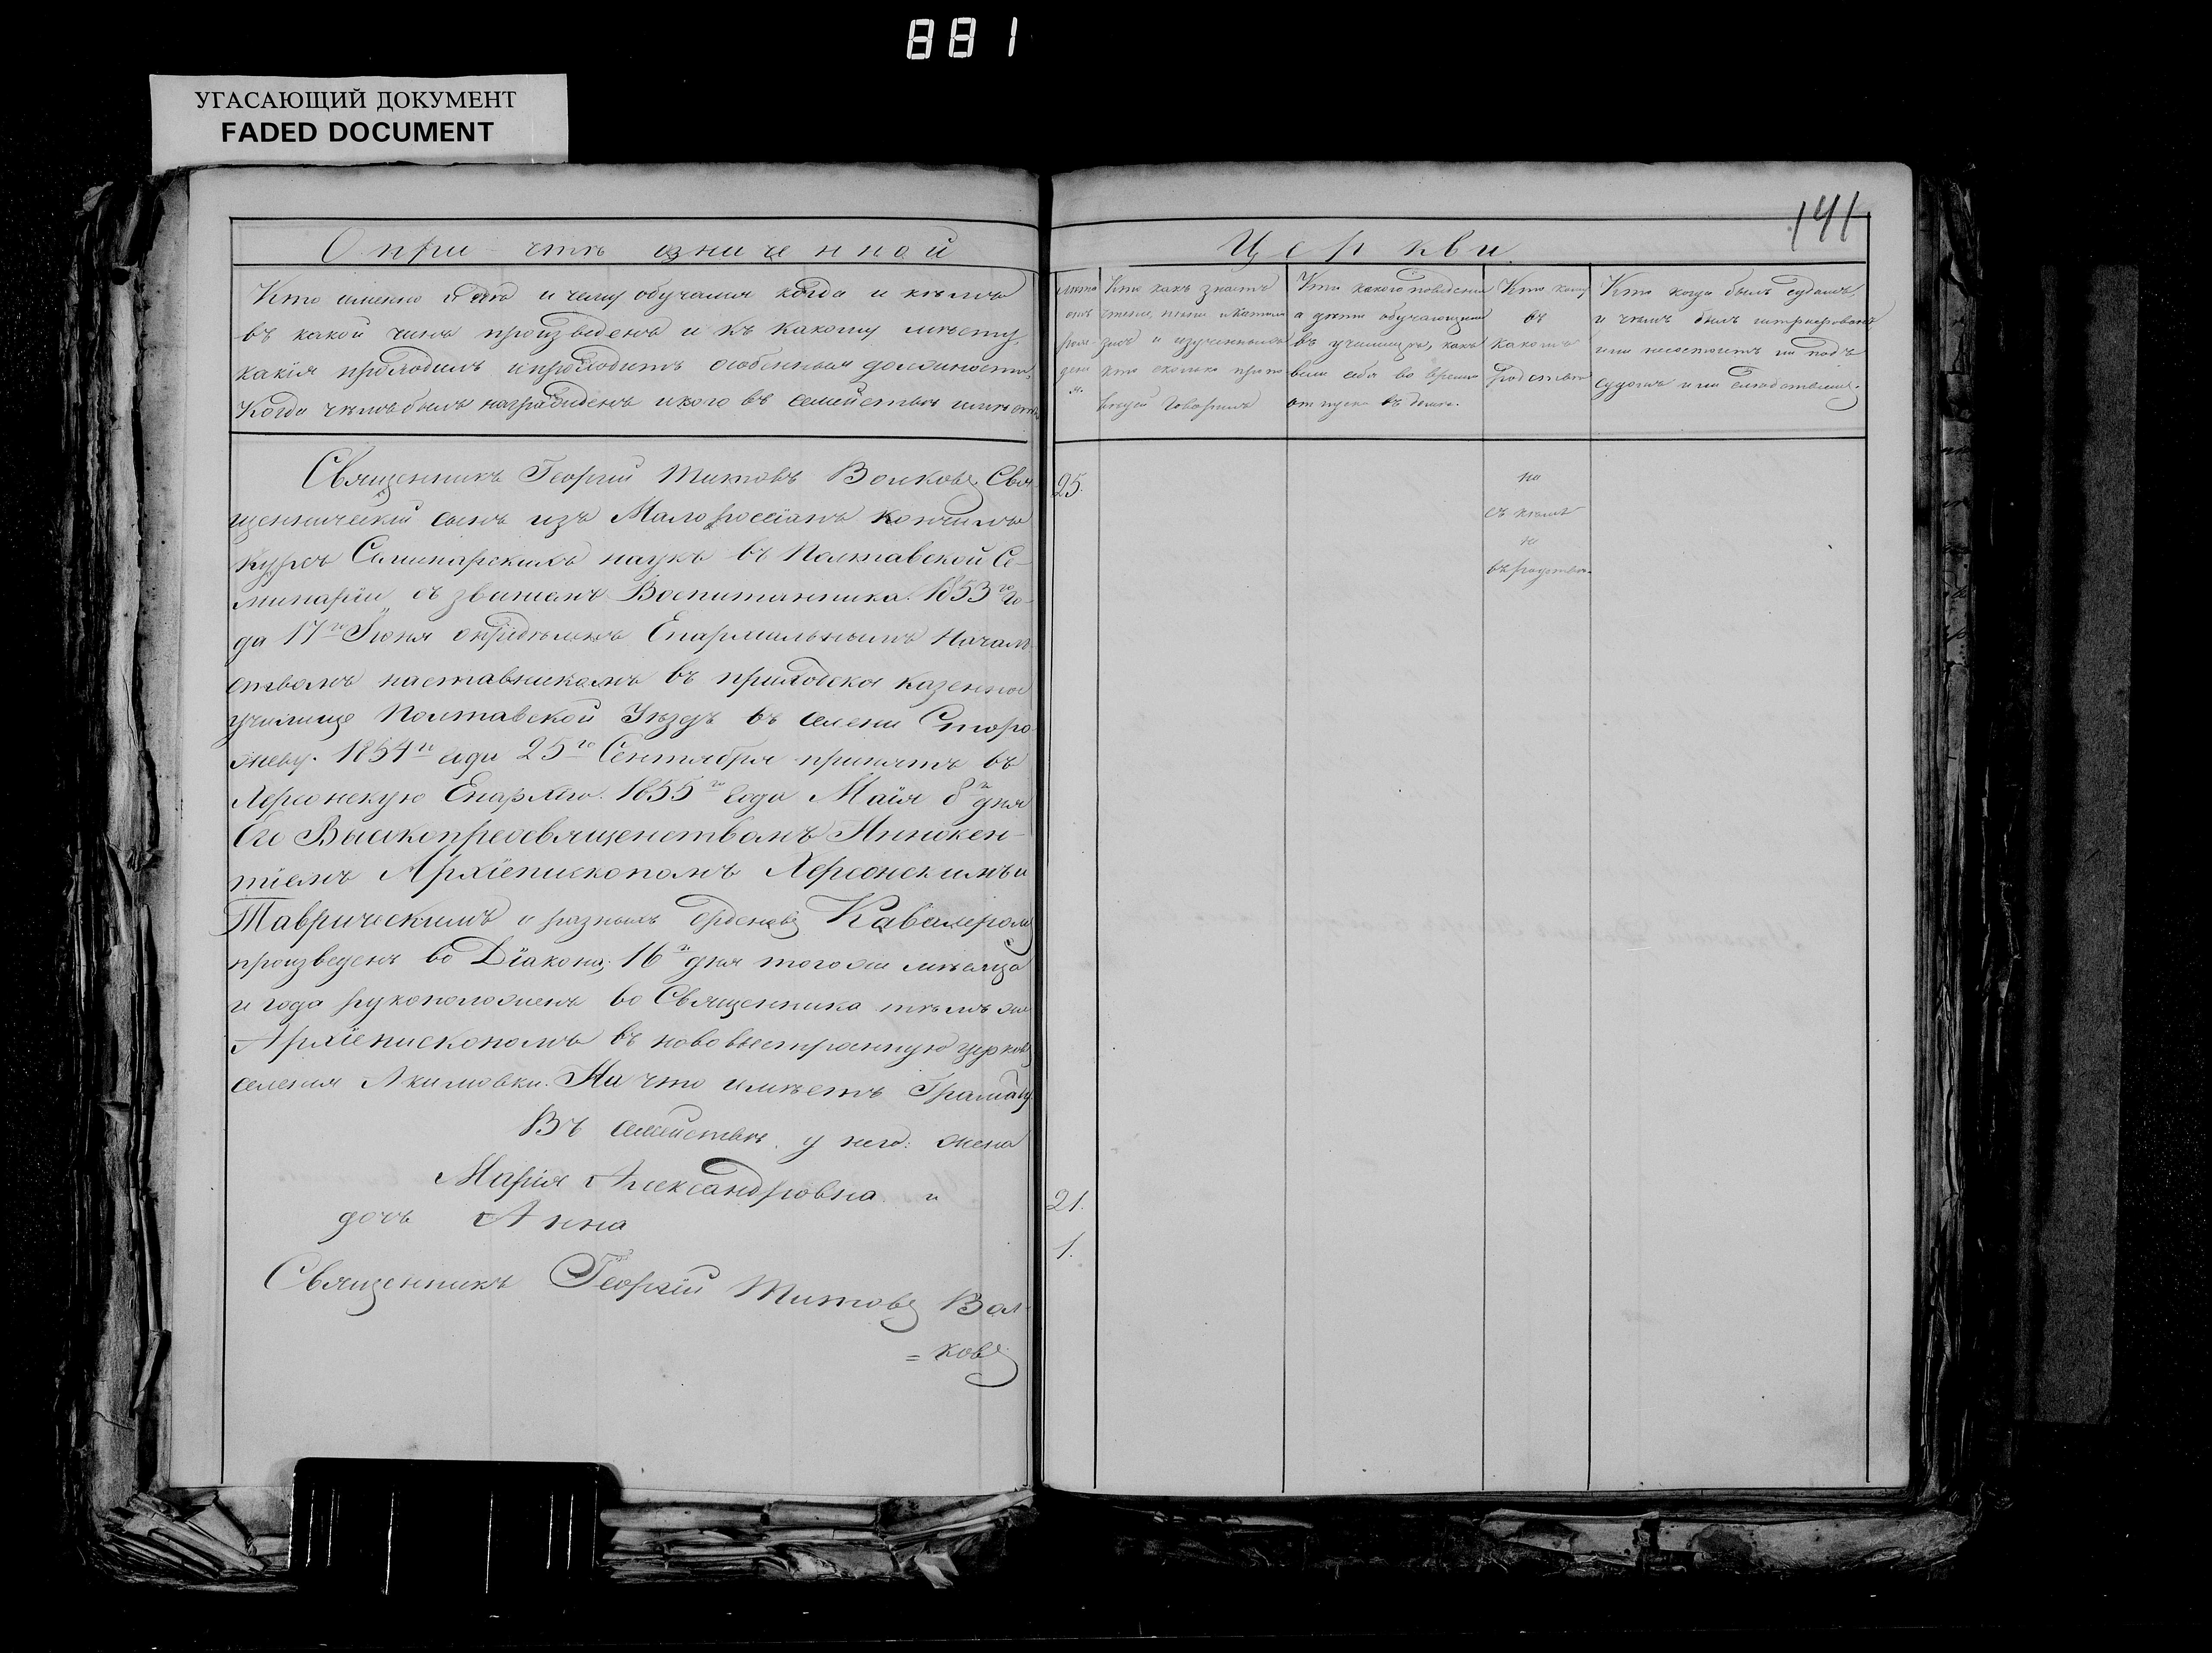 881
УГАСАЮЩИЙ ДОКУМЕНТ
FADED DOCUMENT
141
О причтѣ означенной
Церкви.
Кто именно гдѣ и чему обучался когда и кѣмъ
въ какой чинъ произведенъ и къ какому мѣсту,
какія проходилъ и проходитъ особенныя должности,
Когда чѣмъ былъ награжденъ и кого въ семействѣ имѣетъ
Лѣта
отъ
рож-
дені
я.
Кто какъ знаетъ
чтеніе, пѣніе и катихи
зисъ и изученныхъ
кто сколько пропо
вѣдей говорилъ
Кто какого поведенія
а дѣти обучающіеся
въ училищѣ, какъ
вели себя во время
отпуска въ домы.
Кто кому
въ
какомъ
родствѣ
Кто когда былъ судимъ,
и чѣмъ былъ штрафованъ
или несостоитъ ли подъ
судомъ или слѣдствіемъ.
Священникъ Георгій Титовъ Волковъ, Свя-
щенническій сынъ изъ Малороссіянъ кончилъ
Курсъ Семинарскихъ наукъ въ Полтавской Се-
минаріи съ званіемъ Воспитанника. 1853го Го-
да 17го Іюня опредѣленъ Епархіальнымъ Началь
ствомъ наставникомъ въ приходское казенное
училище Полтавской Уѣздъ въ селеніи Сторо
жеву. 1854го года 25го Сентября принятъ въ
Херсонскую Епархію. 1855го года Маія 8го дня
Его Высокопреосвященствомъ Иннокен-
тіемъ Архіепископомъ Херсонскимъ и
Таврическимъ и разныхъ Орденовъ Кавалеромъ
произведенъ во Діакона; 16го дня того же мѣсяца
и года рукоположенъ во Священника тѣмъ же
Архіепископомъ въ нововыстроенную церковь
селенія Акимовки. На что имѣетъ Грамату
25.
ни
съ кѣмъ
не
въ родствѣ.
Въ семействѣ у него: жена
Марія Александровна и
21.
дочь Анна
1.
Священникъ Георгій Титовъ Вол-
=ковъ